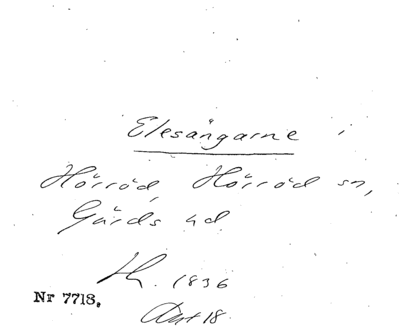 Elesångarne i
Hörröd, Hörröd sn,
Gärds hd
Th. 1836
Nr 7718.
Avt 18